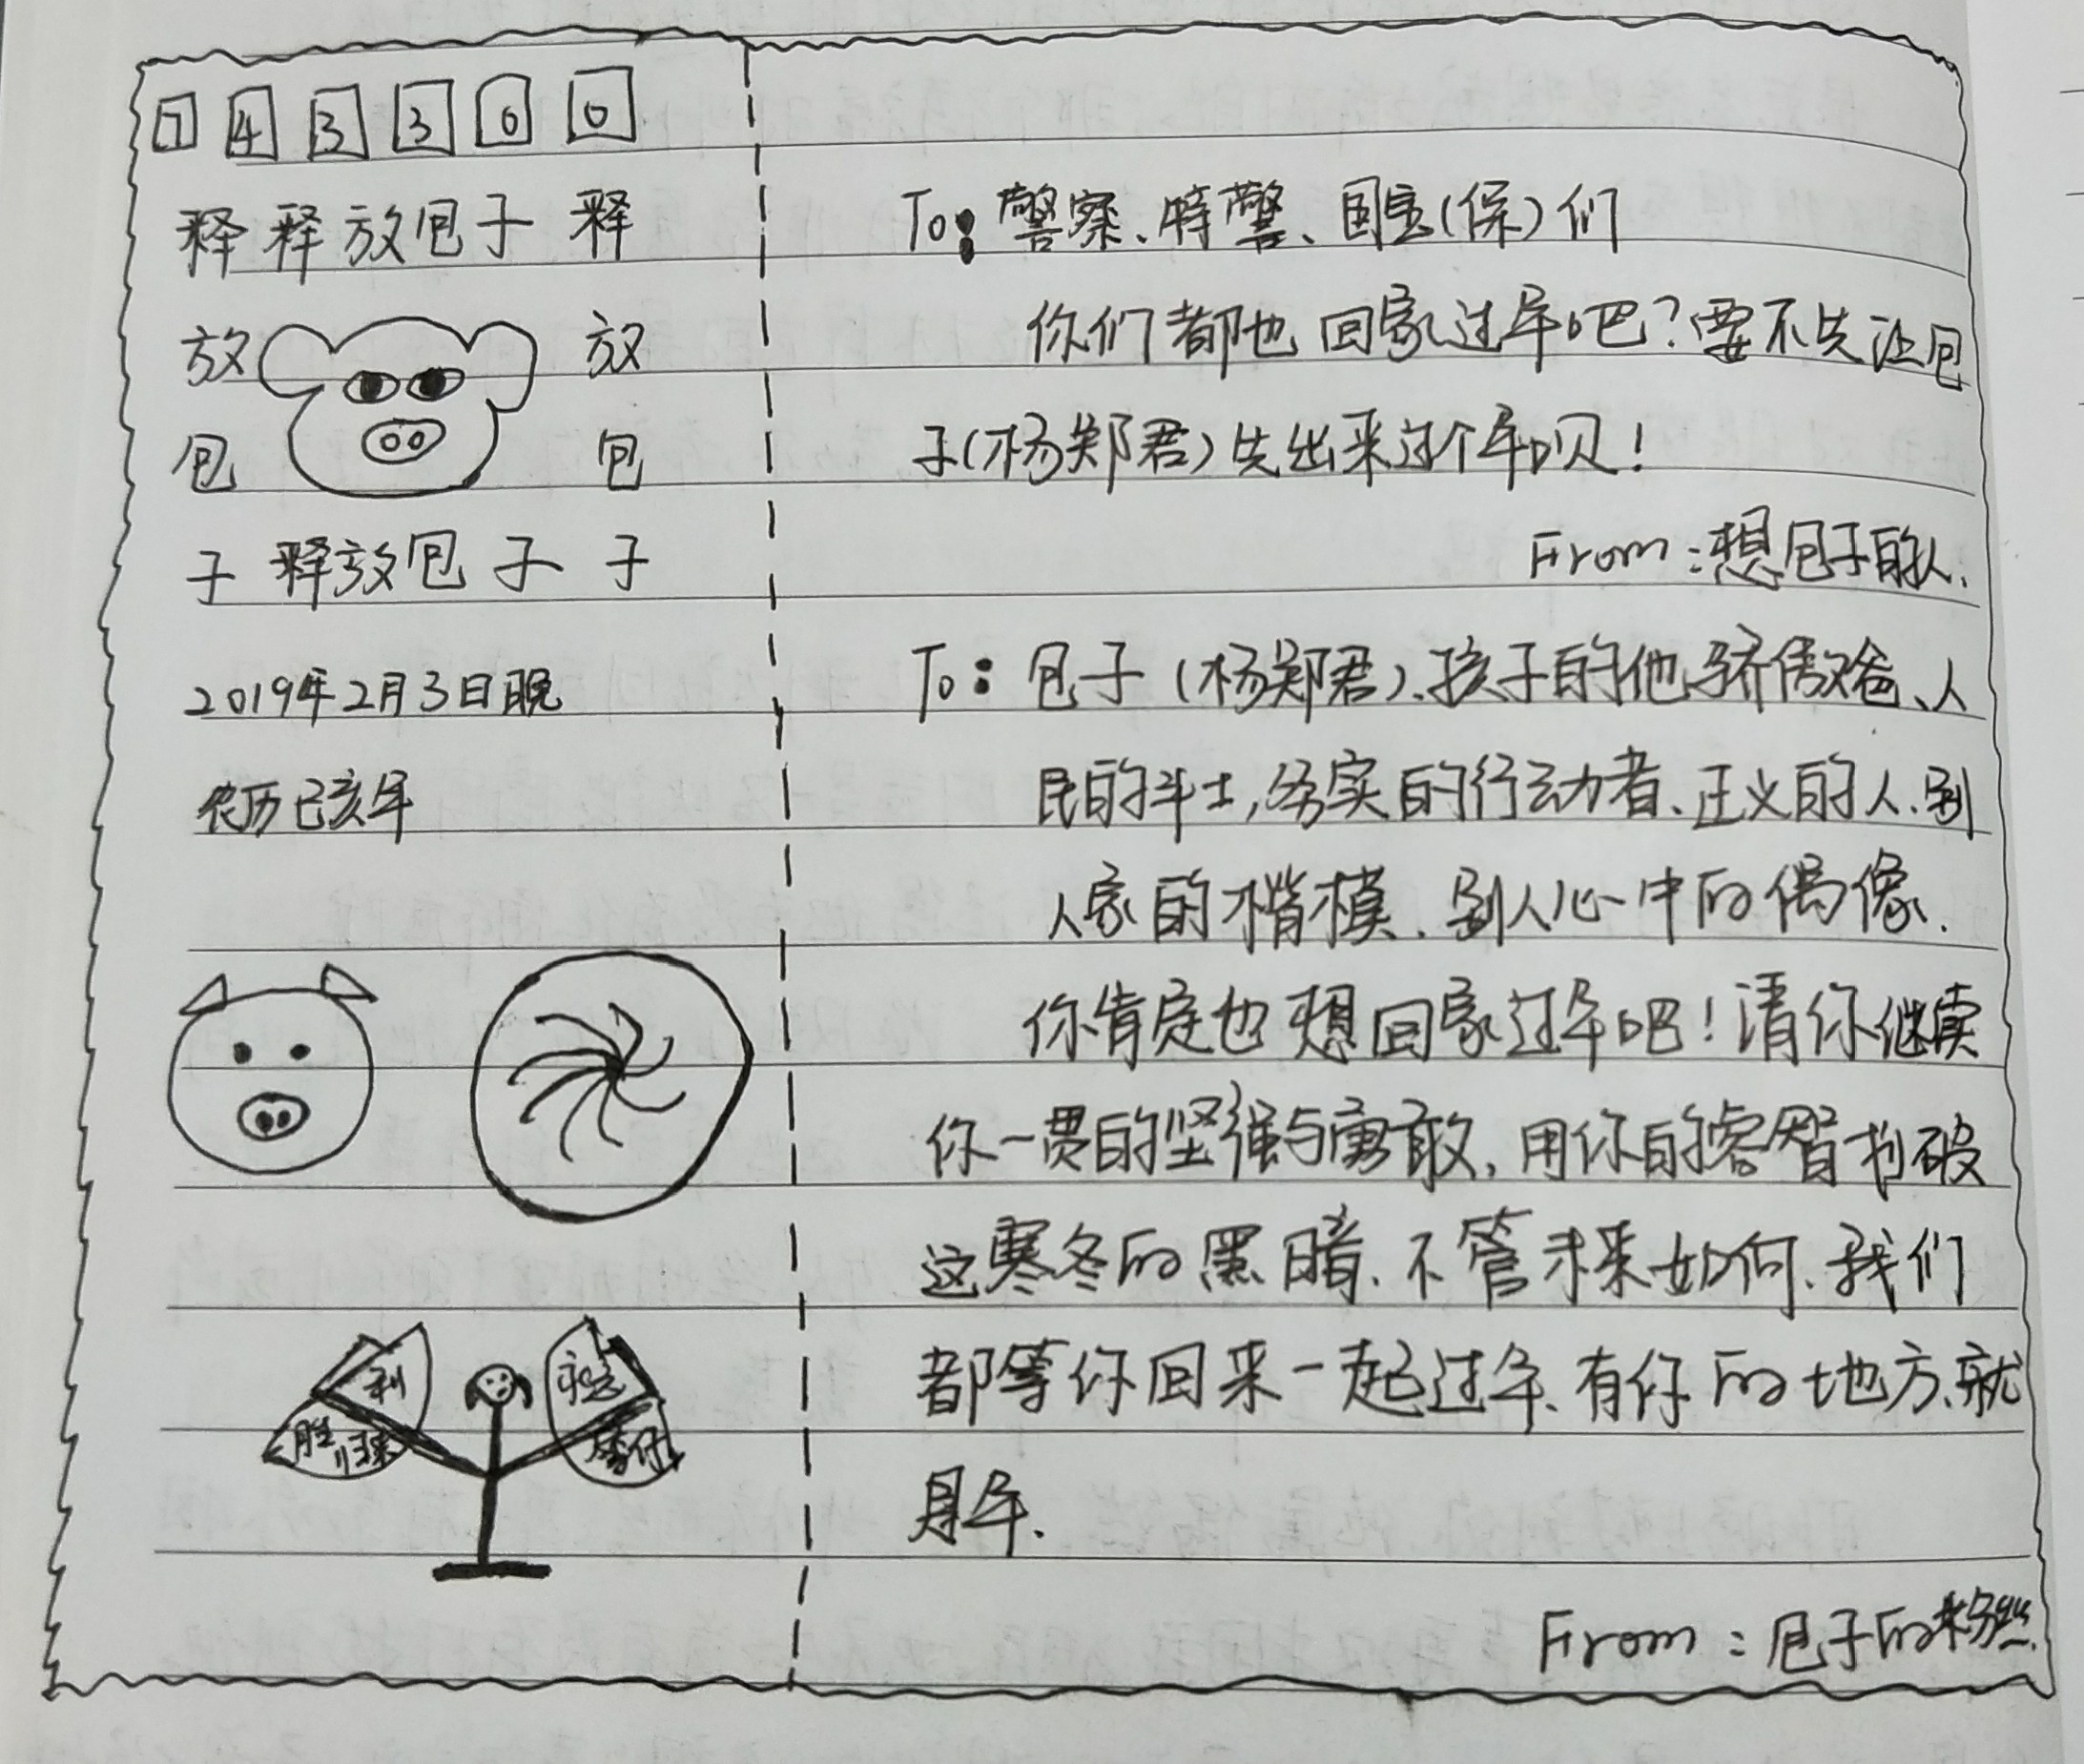 7 4 3 3 6 0
释 释放包子 释
放 放
包 包
子 释放包子 子
2019年2月3日晚
农历已亥年
利 永远
胜 归来
To:警察、特警、国宝(保)们
你们都也回家过年吧?要不先让包
子(杨郑君)先出来过个年呗!
From:想包子的人.
To:包子(杨郑君)、孩子的他骄傲爸、人
民的斗士,务实的行动者、正义的人、别
人家的楷模、别人心中的偶像、
你肯定也想回家过年吧!请你继续
你一贯的坚强与勇敢,用你的睿智划破
这寒冬的黑暗、不管未来如何、我们
都等你回来一起过年、有你的地方、就
是年.
From:包子的粉丝